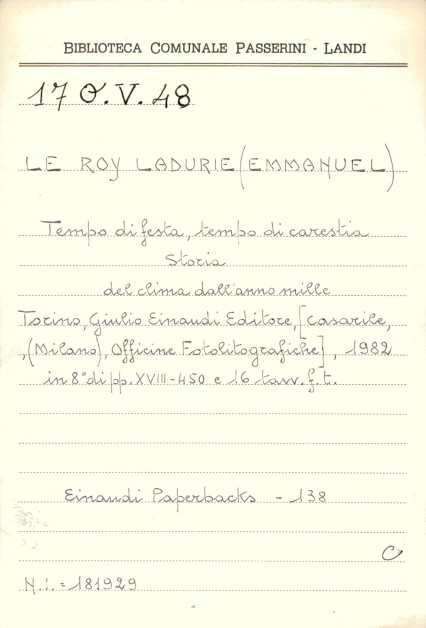 BIBLIOTECA COMUNALE PASSERINI - LANDI
17 O.V. 48
LE ROY LADURIE (EMMANUEL)
Tempo di festa, tempo di carestia
Storia
del clima dall'anno mille
Torino, Giulio Einaudi Editore, [Casarile,
,(Milano), Officine Fotolitografiche], 1982
in 8° di pp. XVIII-450 e 16 tavv. f. t.
Einaudi Paperbacks - 138
C
N.I. = 181929